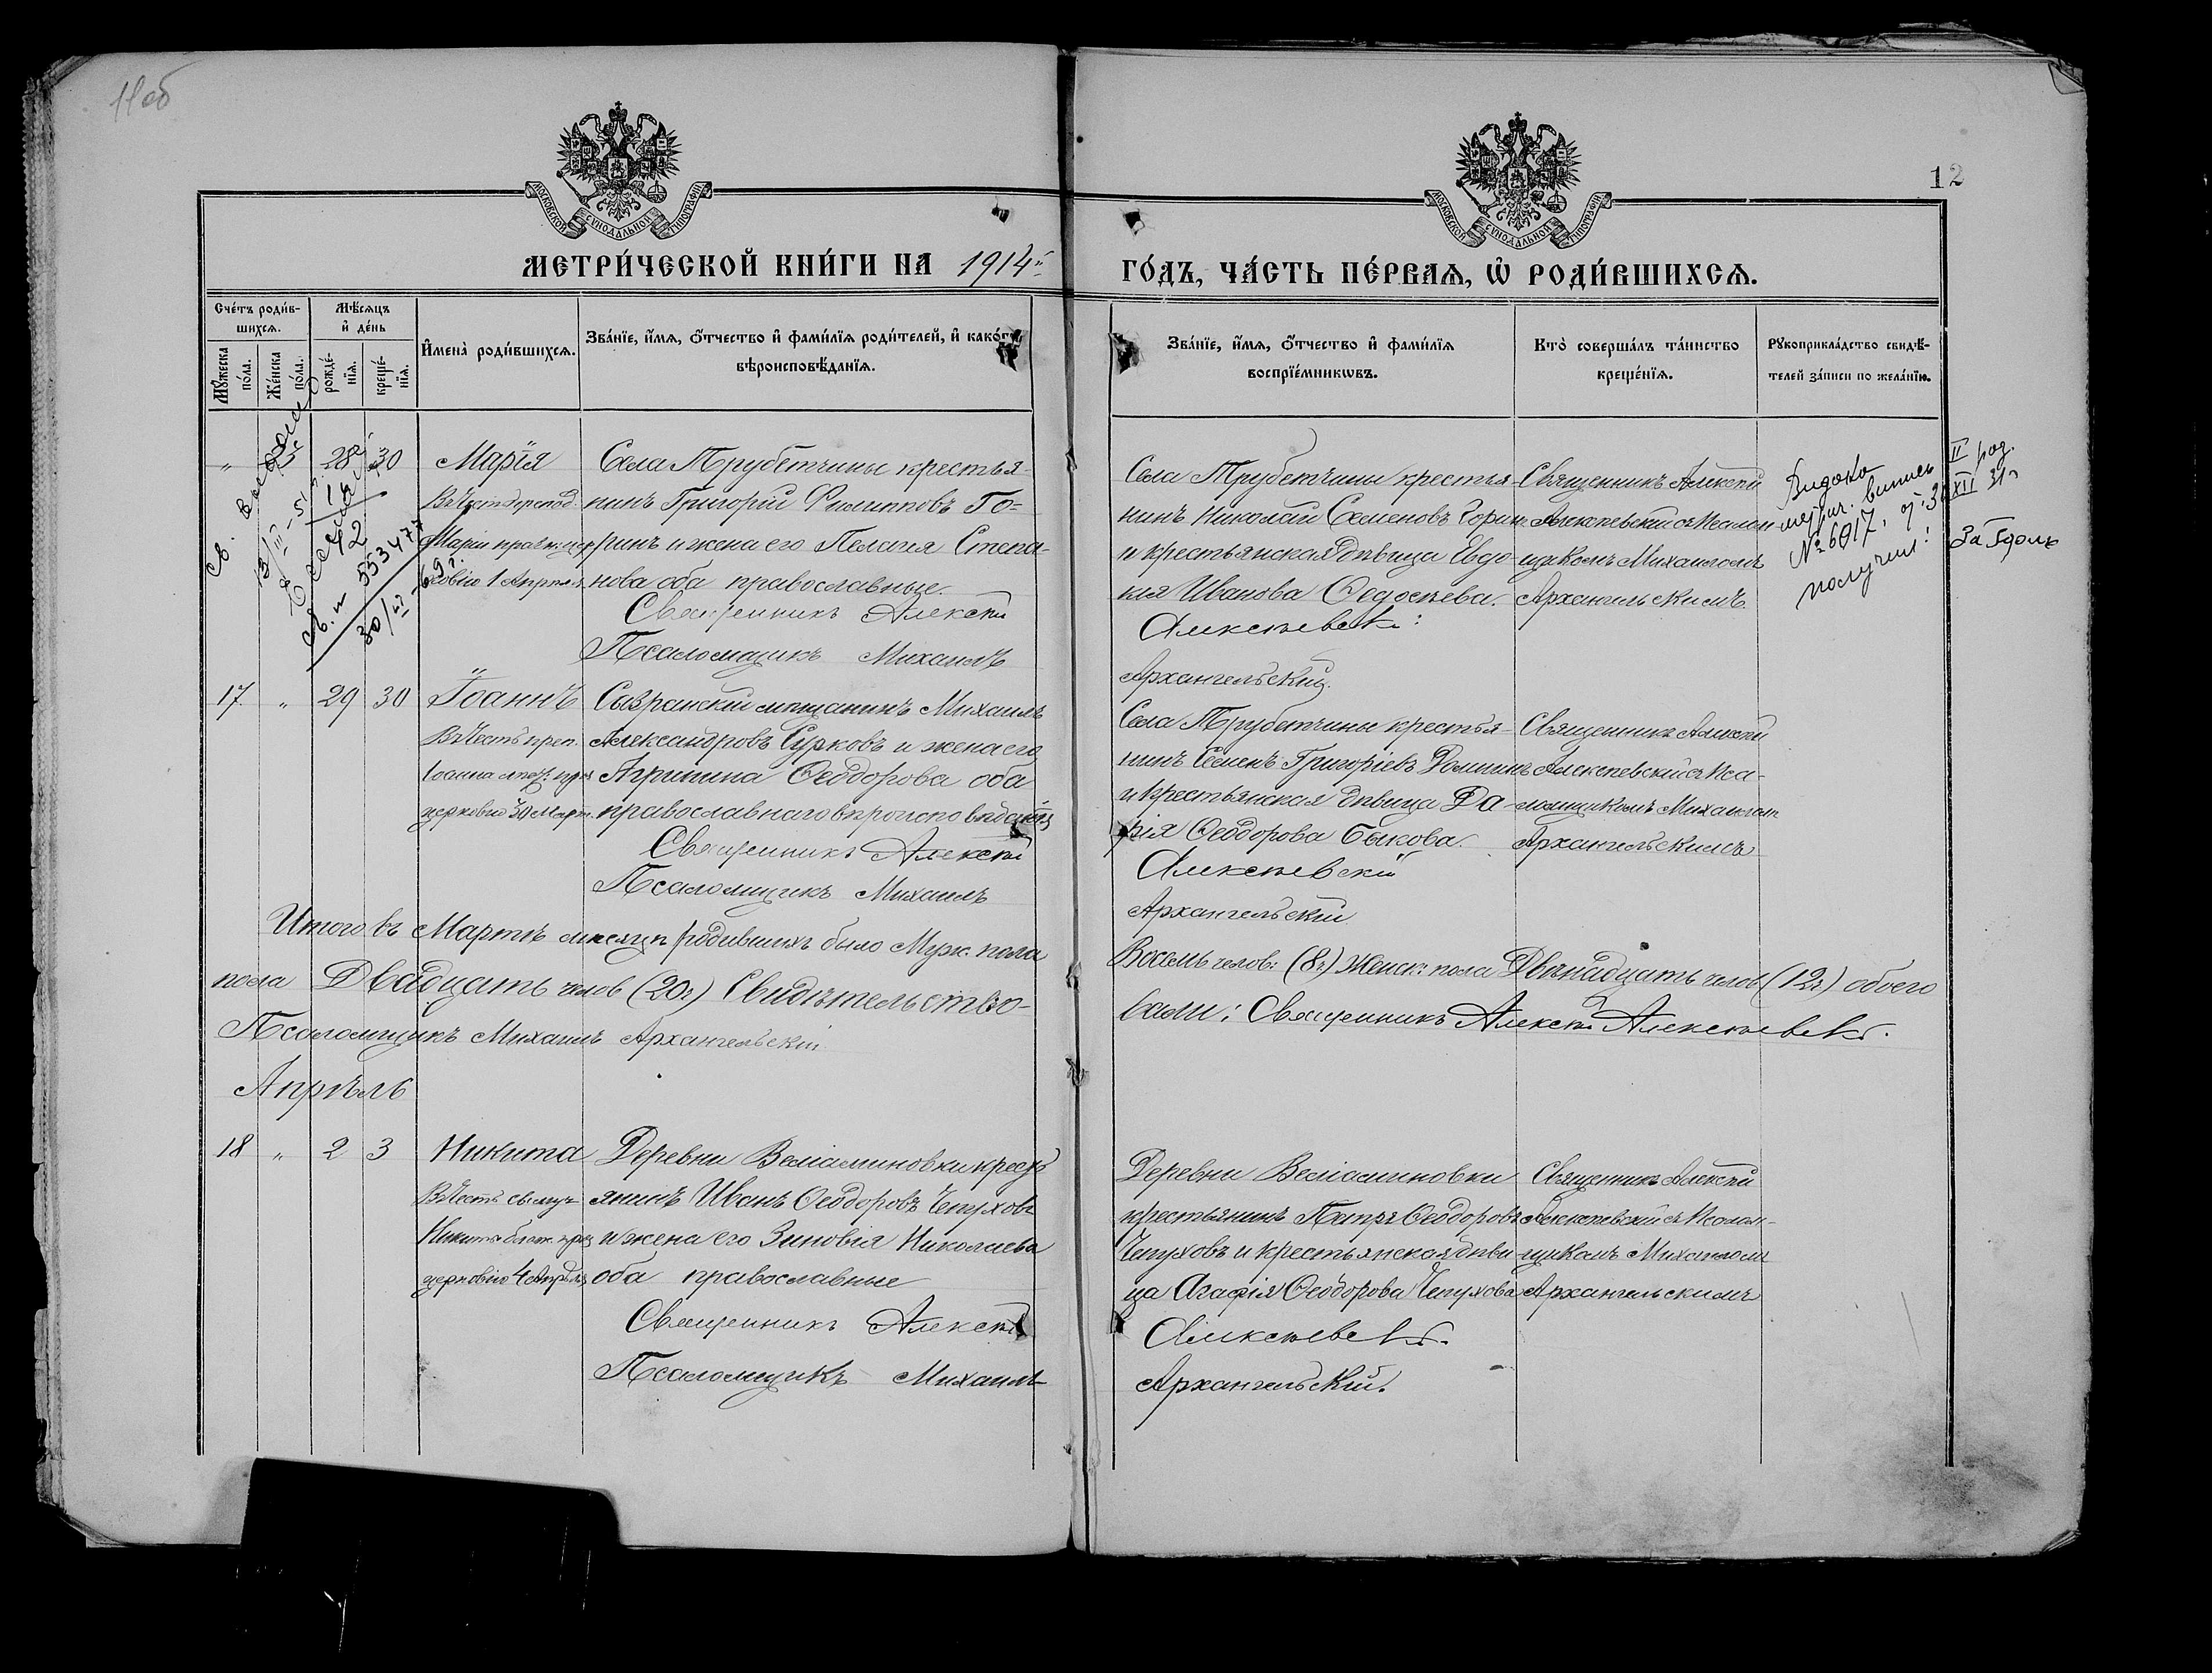 11 об
12
МОСКОВСКОЙ СѴНОДАЛЬНОЙ ТИПОГРАФІИ
МОСКОВСКОЙ СѴНОДАЛЬНОЙ ТИПОГРАФІИ
МЕТРИ́ЧЕСКОЙ КНИ́ГИ НА 1914й
ГО́ДЪ, ЧА́СТЬ ПЕ́РВАѦ, Ѡ҆ РОДИ́ВШИХСѦ.
Сче́тъ роди́в-
шихсѧ.
Мꙋ́жеска
по́ла.
Же́нска
по́ла.
Мѣ́сѧцъ
и҆ де́нь
рожде́-
нїѧ.
креще́-
нїѧ.
И҆мена̀ роди́вшихсѧ.
Зва́нїе, и҆́мѧ, ѻ҆́тчество и҆ фами́лїѧ роди́телей, и҆ како́гѡ
вѣроисповѣ́данїѧ.
Зва́нїе, и҆́мѧ, ѻ҆́тчество и҆ фами́лїѧ
воспрїе́мникѡвъ.
Кто̀ соверша́лъ та́инство
креще́нїѧ.
Рꙋкоприкла́дство свидѣ́-
телей за́писи по жела́нїю.
" 28 30 Марія
Въ честь препод.
Маріи
1 Апрѣля
Села Трубетчины крестья-
нинъ Григорій Филипповъ Го-
ринъ и жена его Пелагія Степа-
нова оба православные.
Священникъ Алексѣй
Псаломщикъ Михаилъ
Села Трубетчины крестья-
нинъ Николай Семеновъ Горинъ
и крестьянская дѣвица Евдо-
кія Иванова Ѳедосѣева.
Алексѣевск:
Архангельскій.
Священникъ Алексѣй
Алексѣевскій съ Псалом
щикомъ Михаиломъ
Архангельскимъ
метрич. выпись
№ 6017,
получил:
За Горинъ
св. н 553477
17 " 29 30 Іоаннъ
Въ честь преп.
Іоанна
церковію 30 Март.
Сызранскій мѣщанинъ Михаилъ
Александровъ Сурковъ и жена его
Агрипина Ѳеодорова оба
православнаго вѣроисповѣданія
Священникъ Алексѣй
Псаломщикъ Михаилъ
Села Трубетчины крестья-
нинъ Семенъ Григоріевъ
и крестьянская дѣвица Да-
рія Ѳеодорова Быкова.
Алексѣевскій
Архангельскій
Священникъ Алексѣй
Алексѣевскій съ Пса-
ломщикомъ Михаилом
Архангельскимъ
Итого въ Мартѣ мѣсяцѣ родившихъ было Муж. пола
Восемь челов: (8ч) Женск: пола Двѣнадцать челов (12ч) обоего
пола Двадцать челов (20ч) Свидѣтельство-
вали: Священникъ Алексѣй Алексѣевск.
Псаломщикъ Михаилъ Архангельскій
Апрѣль
18 " 2 3 Никита
Въ честь
Никиты
церковію 4 Апрѣля
Деревни Веліаминовки крест
янинъ Иванъ Ѳеодоровъ Чепуховъ
и жена его Зиновія Николаева
оба православные
Священникъ Алексѣй
Псаломщикъ Михаилъ
Деревни Веліаминовки
крестьянинъ Петръ Ѳеодоровъ
Чепуховъ и крестьянская дѣви-
ца Агафія Ѳеодорова Чепухова
Алексѣевск.
Архангельскій.
Священникъ Алексѣй
Алексѣевскій съ Псалом-
щикомъ Михаиломъ
Архангельскимъ